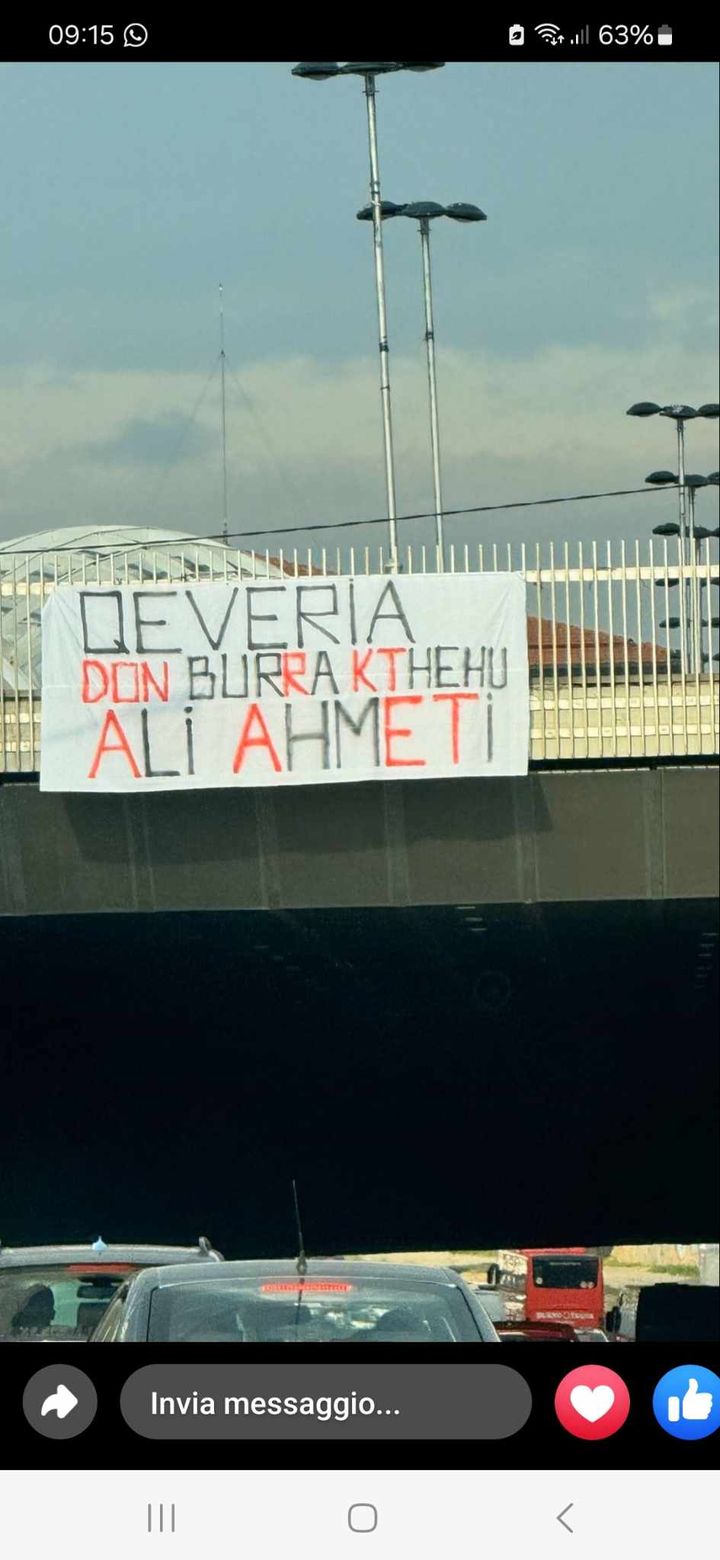 09:15
63%
QEVERiA
DON BURRA KTHEHU
ALi AHMETi
Invia messaggio...